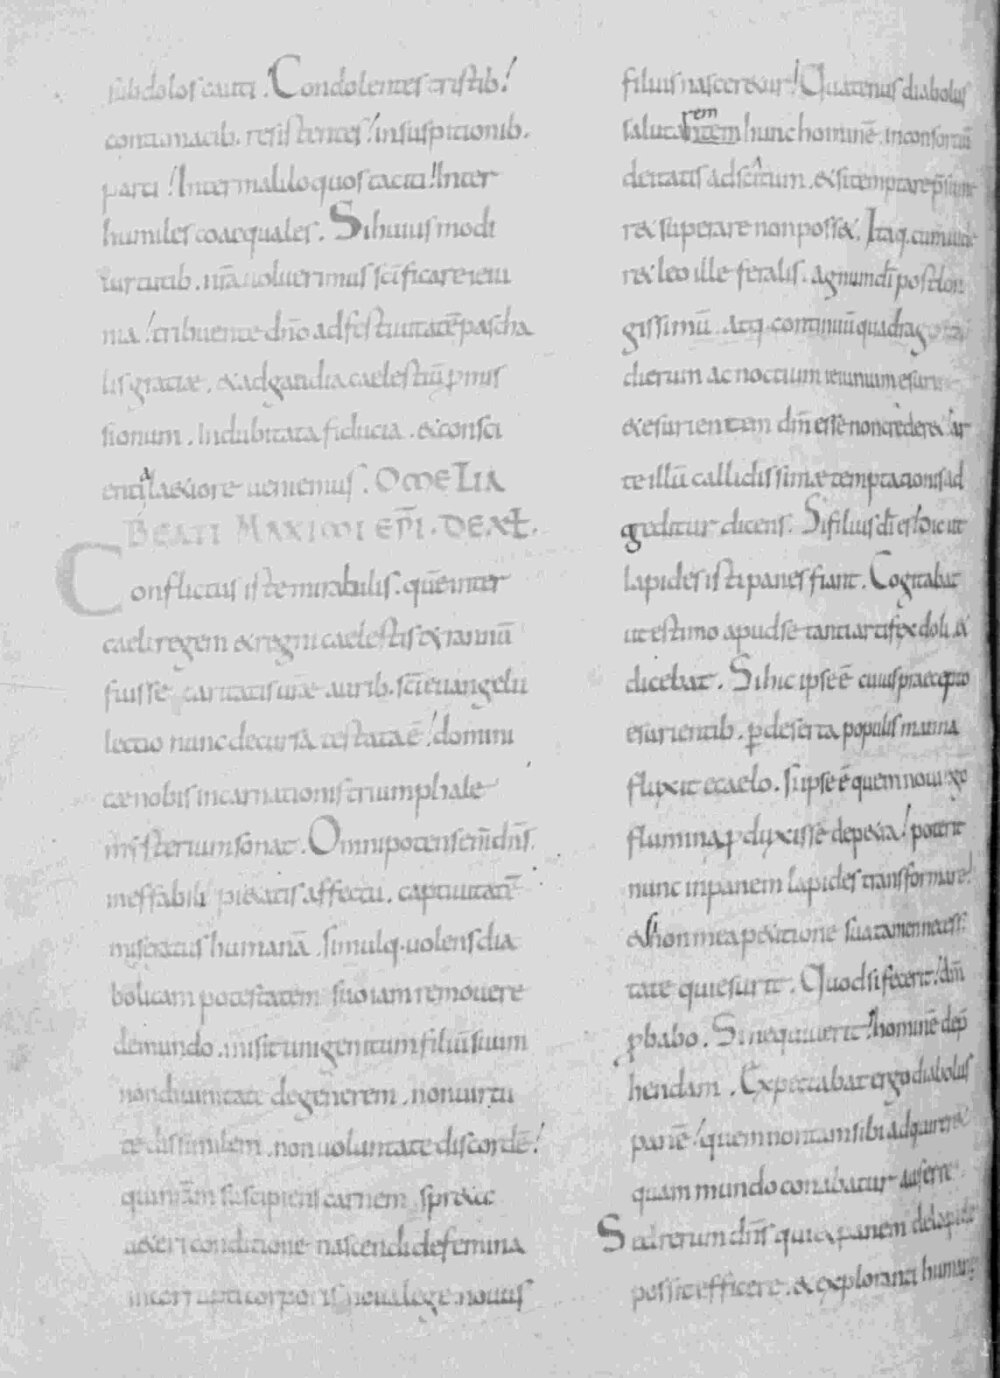 subdolos cauti. Condolentes tristib!
contumacib. resistentes! insuspitionib.
parci! Inter maliloquos taciti! Inter
humiles coaequales. Si huius modi
uirtutib. nr̄a uoluerimus sc̄ificare ieiu
nia! tribuente dn̄o ad festiuitatē pascha
lis gratiae. & ad gaudia caelestiū ꝓmis
sionum. Indubitata fiducia. & consci
entia laetiore ueniemus. OMELIA
BEATI MAXIMI EP̄I. DE
Conflictus iste mirabilis. quē inter
caeli regem & regni caelestis & irannū
fuisse caritatis ur̄ae aurib. sc̄i euangelii
lectio nunc decursa testata ē! domini
cae nobis incarnationis triumphale
mysterium sonat. Omnipotens eni dn̄s.
ineffabili pi&atis affectu. captiuitatē
miseratus humanā. simulq. uolens dia
bolicam potestatem suo iam remouere
de mundo. misit unigenitum filiū suum
non diuinitate degenerem. non uirtu
te dissimilem. non uoluntate discordē!
qui nr̄am suscipiens carnem. spr&ac
ueteri conditione nascendi de femina
incorrupti corporis noua lege nouus
filius nascer&ur! Quatenus diabolus
em
saluta ntem hunc hominē. in consortiū
deitatis adscitum. & si temptare p̄sum
r& superare non poss&. Itaq. cum uide
r& leo ille feralis. agnum dī post lon
gissimū. atq. continuū quadrag
dierum ac noctium ieiunium esuri
& esurientem dm̄ esse non creder&! ar
te illū callidissimae temptationis ad
greditur dicens. Si filius dī es! dic ut
lapides isti panes fiant. Cogitabat
ut estimo apud se tanti artifex doli. &
dicebat. Si hic ipse ē cuius praecepto
esurientib. ꝑ deserta populis manna
fluxit e caelo. si ipse ē quem noui &
flumina ꝓduxisse de petra! poterit
nunc in panem lapides transformare!
& si non mea petitione sua tamen necessi
tate qui esurit. Quod si fecerit! dm̄
ꝓbabo. Si nequiuerit! hominē dep̄
hendam. Expectabat ergo diabolus
panē! quem non tam sibi adquirere
quam mundo conabatur auferre.
Sed rerum dn̄s qui & panem de lapide
possit efficere. & exploranti humani